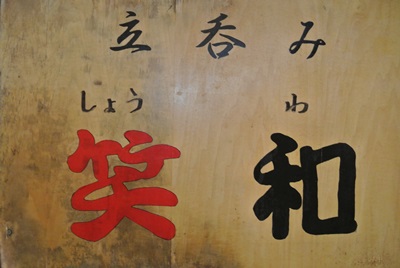 立呑み
しょう わ
笑和